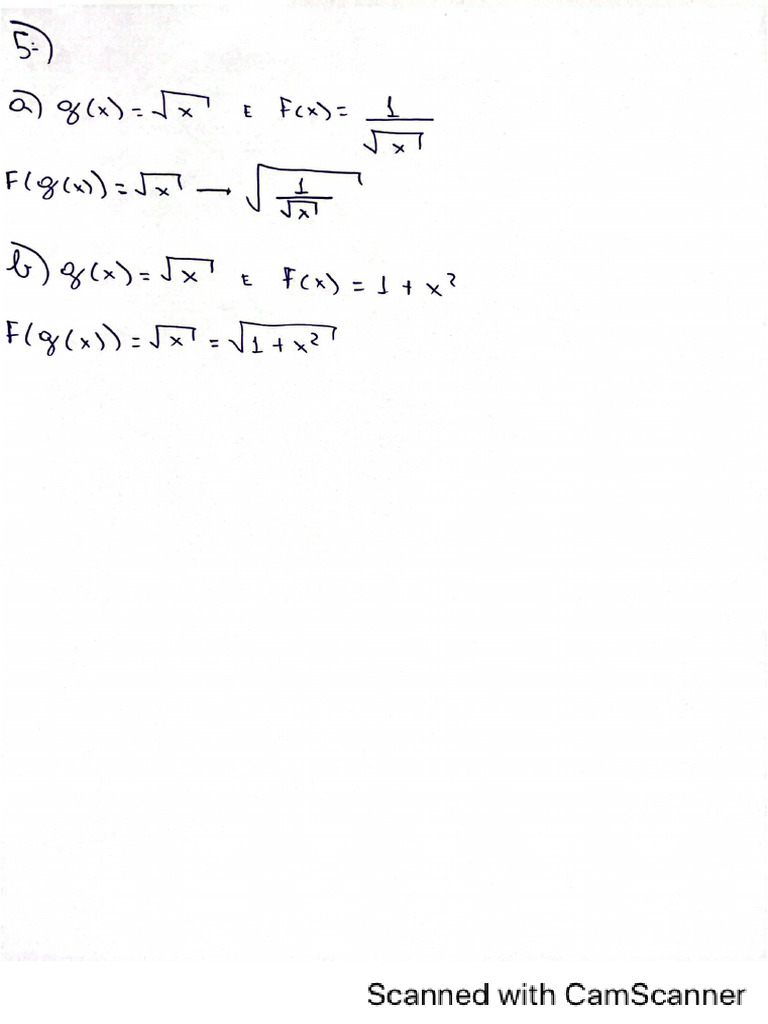 5-)
a) g(x) = √x E F(x) = 1/√x
F(g(x)) = √x → √(1/√x)
b) g(x) = √x E F(x) = 1 + x²
F(g(x)) = √x = √(1 + x²)
Scanned with CamScanner